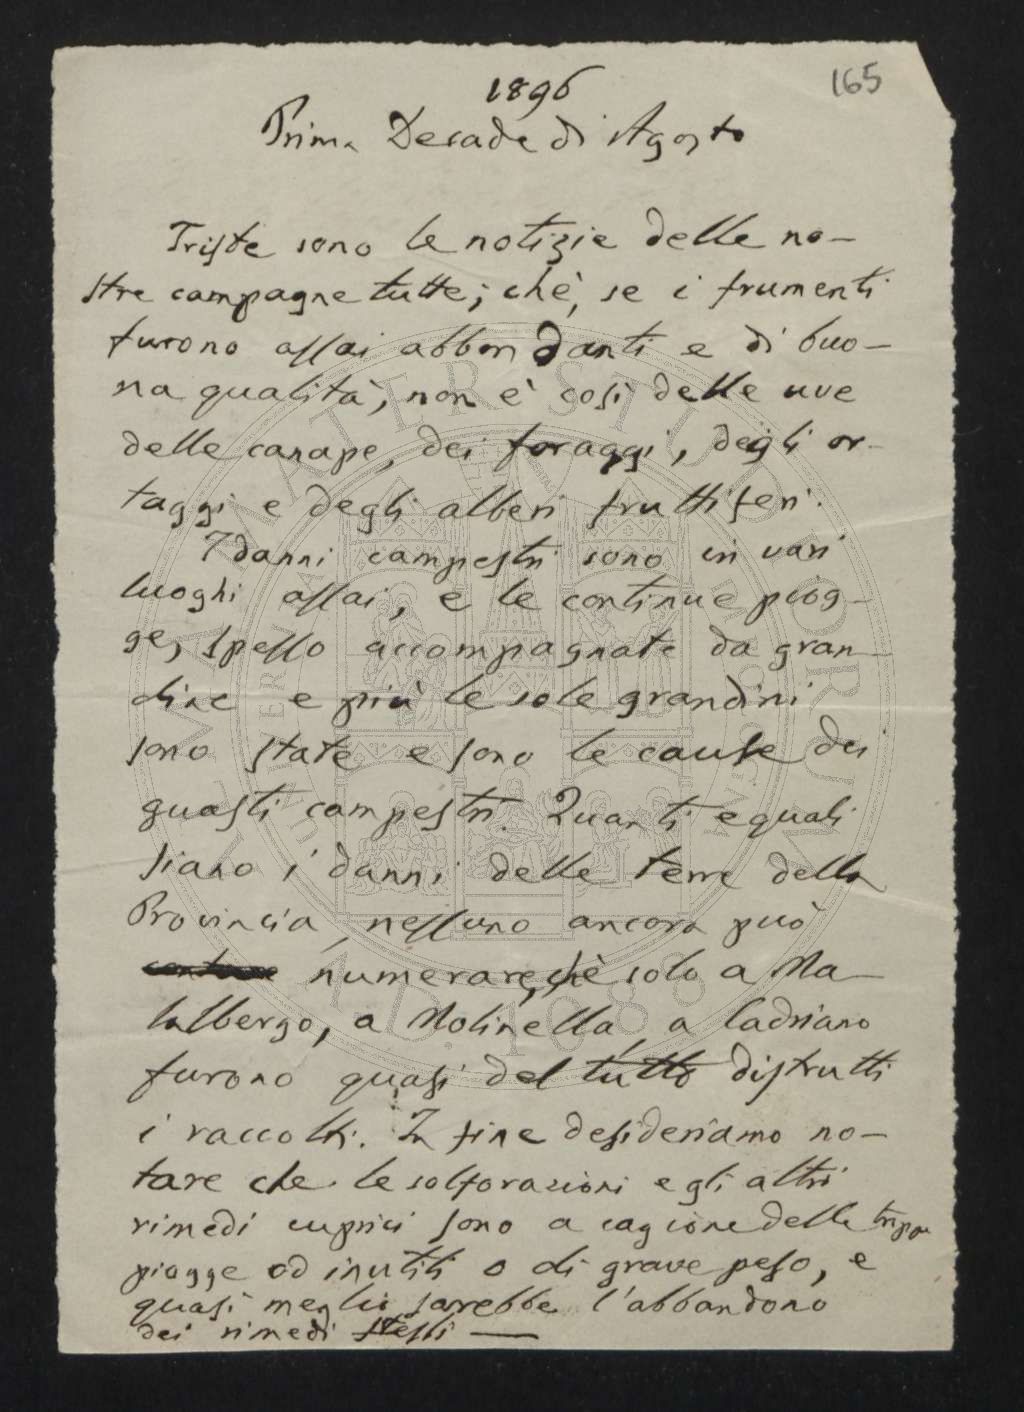 165
1896
Prima Decade di Agosto
Triste sono le notizie delle no-
stre campagne tutte; chè, se i frumenti
furono assai abbondanti e di buo-
na qualità, non è così delle uve
delle canape, dei foraggi, degli or-
taggi e degli alberi fruttiferi.
I danni campestri sono in vari
luoghi assai, e le continue piog-
ge, spesso accompagnate da gran-
dine e più le sole grandini
sono state e sono le cause dei
guasti campestri. Quanti e quali
siano i danni delle terre della
Provincia, nessuno ancora può
numerare, chè solo a Ma-
lalbergo, a Molinella, a Cadriano
furono quasi del tutto distrutti
i raccolti. In fine desideriamo no-
tare che le solforazioni e gli altri
rimedi cuprici sono a cagione delle
piogge od inutili o di grave peso, e
quasi meglio sarebbe l'abbandono
dei rimedi stessi —
ALMA MATER STUDIORUM
A.D. 1088